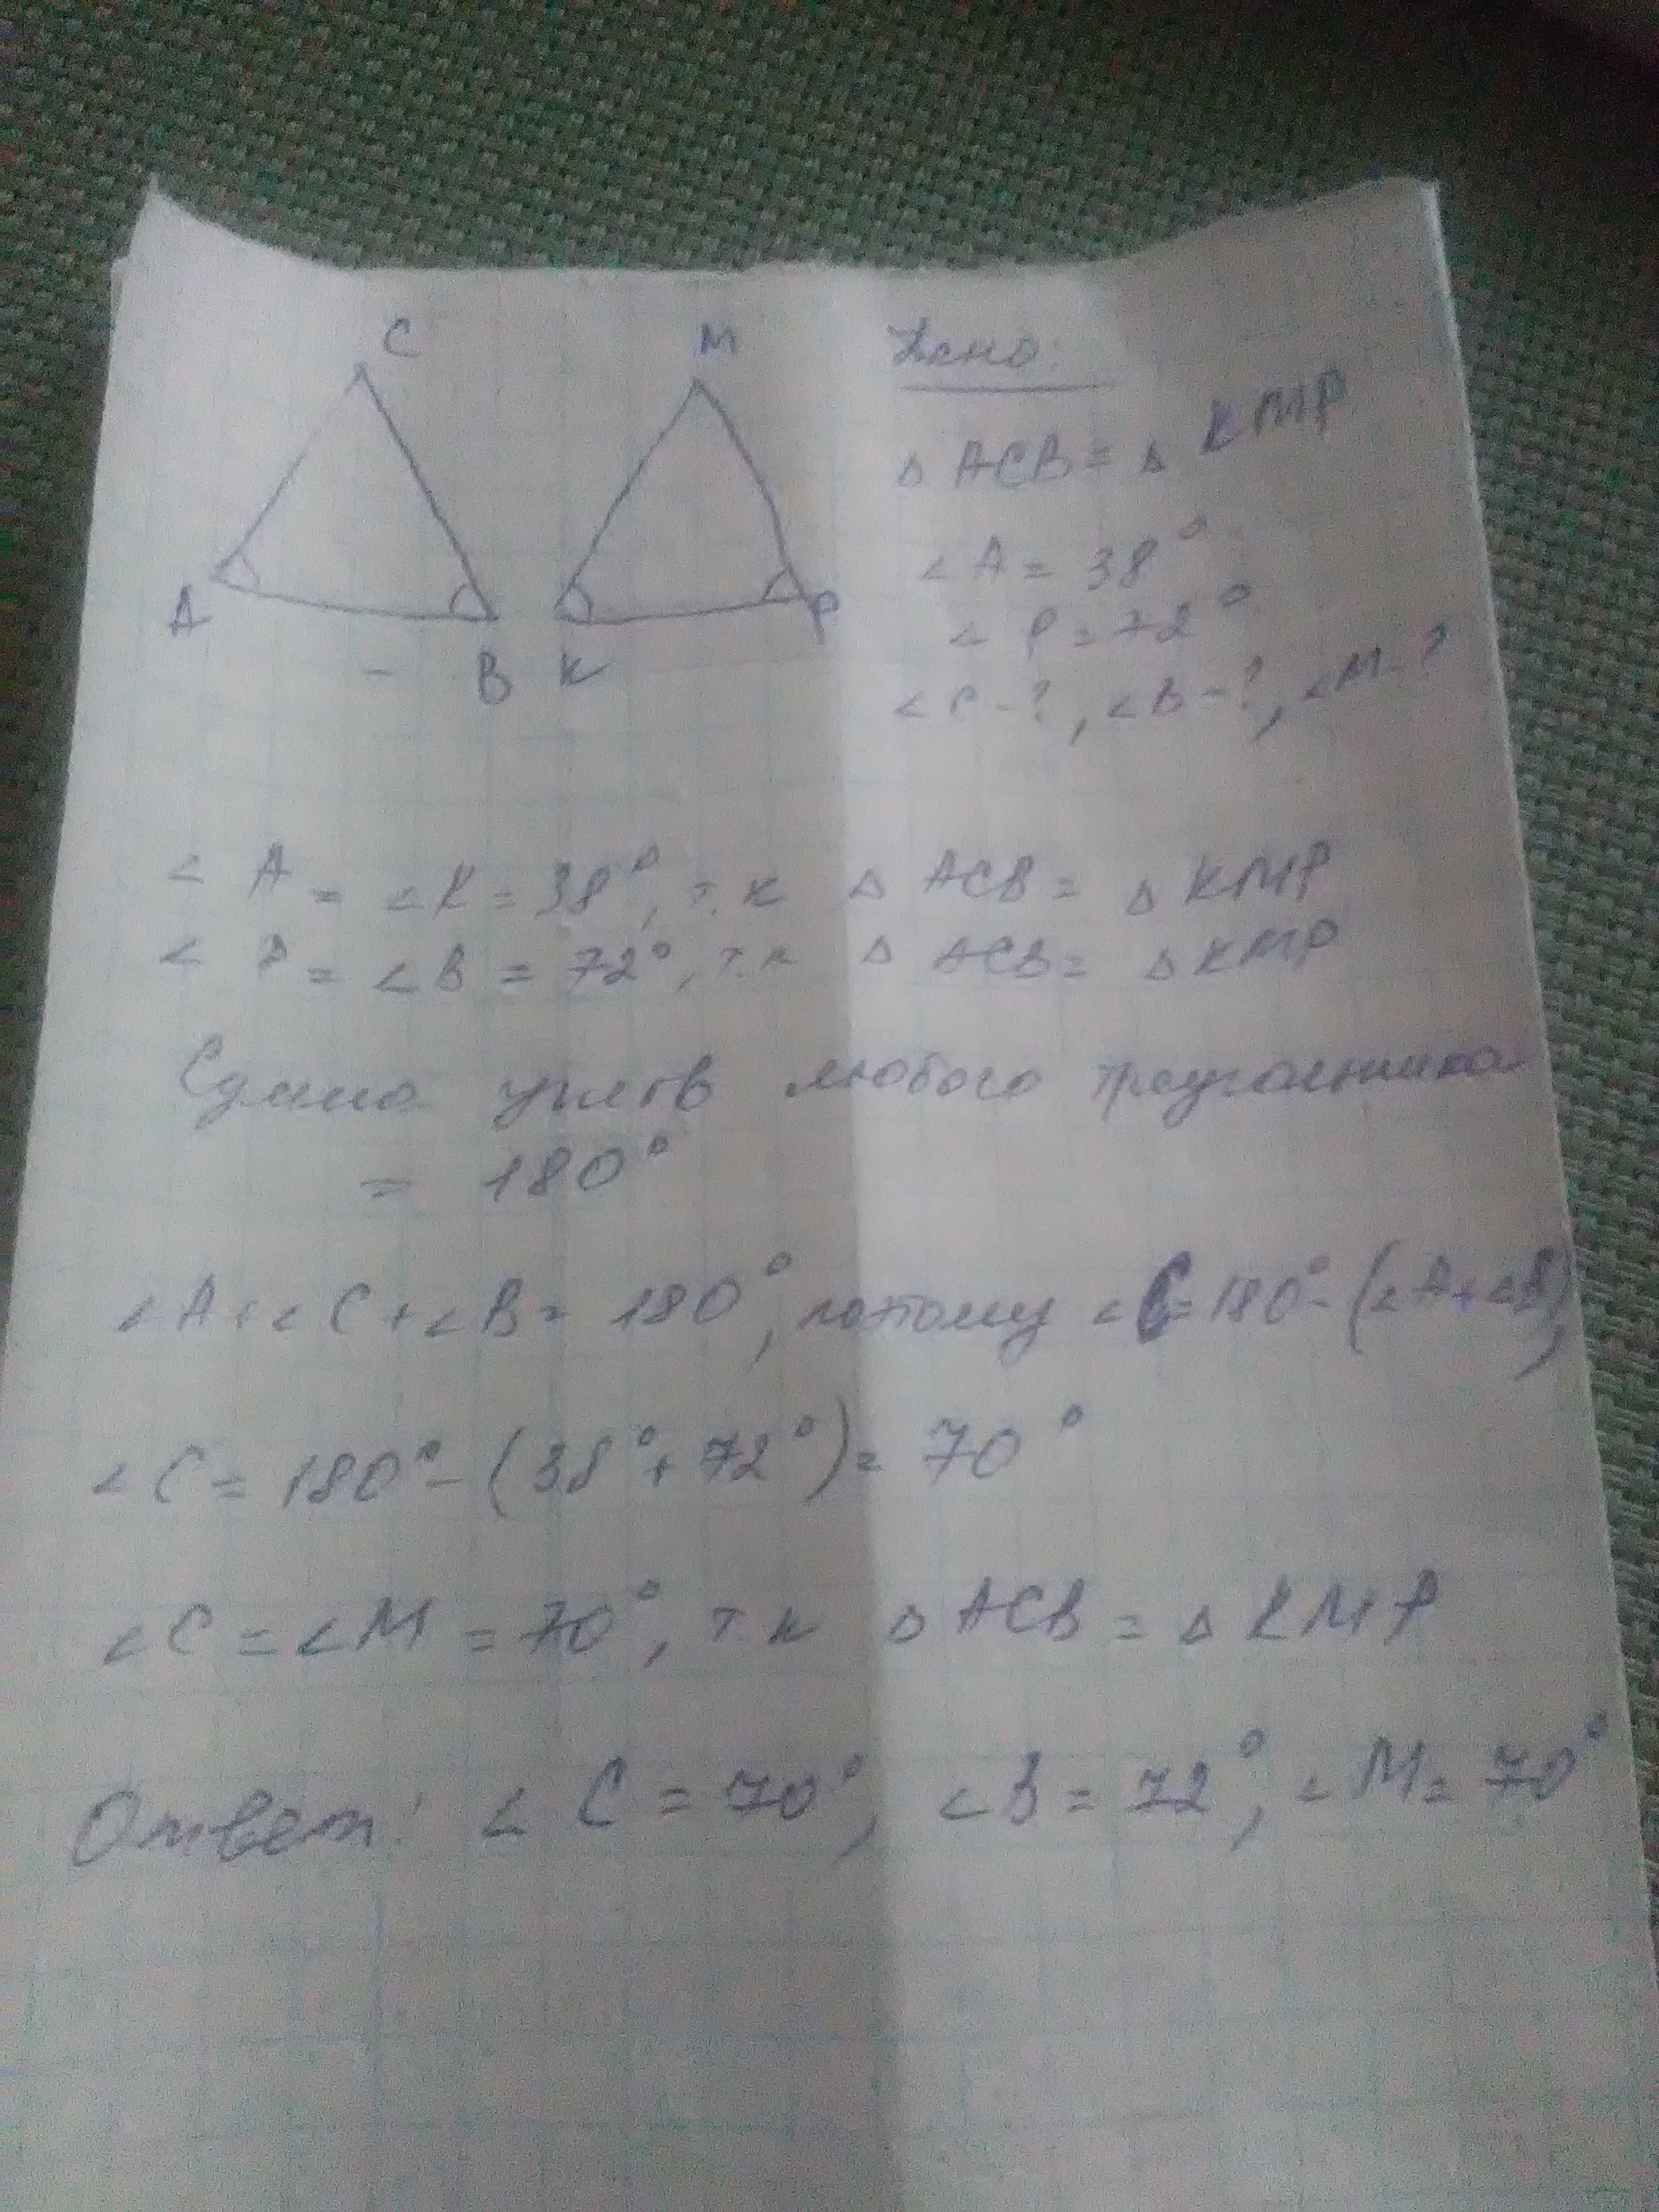 C
M
A
B
K
P
Дано:
△ ACB = △ KMP
∠A = 38°
∠ P = 72°
∠C - ?, ∠B - ?, ∠M - ?
∠ A = ∠K = 38°, т.к △ ACB = △ KMP
∠ P = ∠B = 72°, т.к △ ACB = △ KMP
Сумма углов любого треугольника
= 180°
∠A + ∠C + ∠B = 180°, потому ∠C = 180° - (∠A + ∠B),
∠C = 180° - (38° + 72°) = 70°
∠C = ∠M = 70°, т к △ ACB = △ KMP
Ответ: ∠ C = 70°, ∠B = 72°, ∠M = 70°